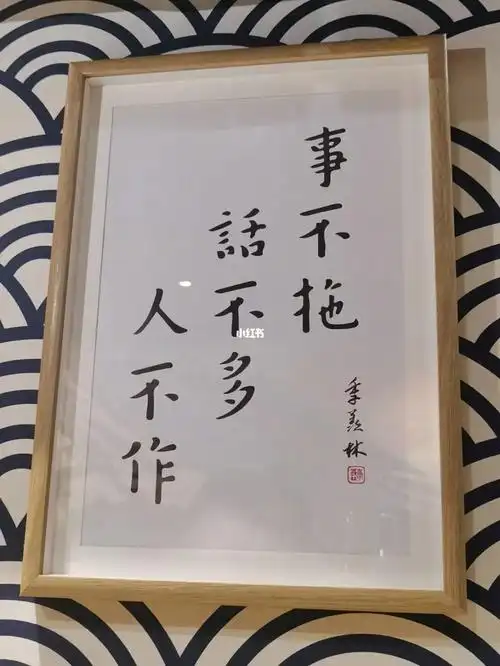 事不拖
話不多
人不作
季羡林
小红书